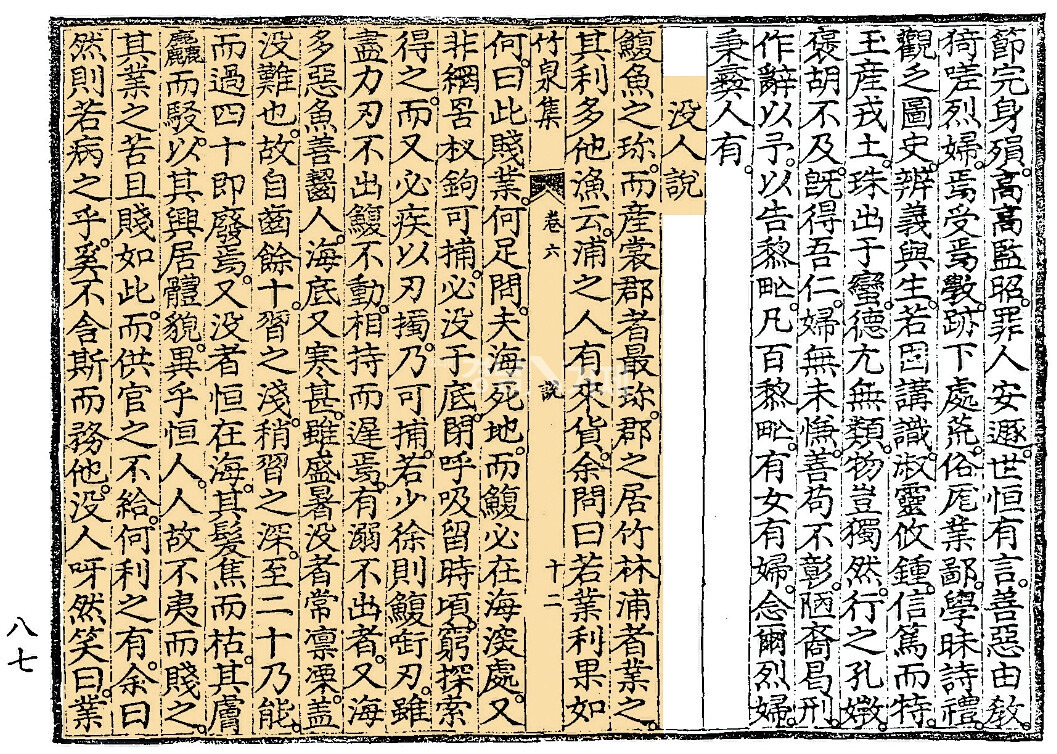 節完身殞。高高監昭。罪人安遯。世恒有言。善惡由敎。
猗嗟烈婦。焉受焉斅。跡下處荒。俗厖業鄙。學昧詩禮。
觀乏圖史。辨義與生。若因講識。淑靈攸鍾。信篤而特。
玉產戎土。珠出于蠻。德尤無類。物豈獨然。行之孔媺。
褒胡不及。旣得吾仁。婦無未憮。善苟不彰。陋裔曷刑。
作辭以予。以告黎甿。凡百黎甿。有女有婦。念爾烈婦。
秉彝人有。
没人說
鰒魚之珎。而產裳郡者最珎。郡之居竹林浦者業之。
其利多他漁云。浦之人有來貨。余問曰若業利果如
竹泉集 卷六 說 十二
何。曰此賤業。何足問。夫海死地。而鰒必在海深處。又
非網罟杈鉤可捕。必没于底。閉呼吸留時頃。窮探索
得之。而又必疾以刃擉。乃可捕。若少徐則鰒衘刃。雖
盡力刃不出。鰒不動。相持而遲焉。有溺不出者。又海
多惡魚善齧人。海底又寒甚。雖盛暑没者常凛溧。盖
没難也。故自齒餘十。習之淺。稍習之深。至二十乃能。
而過四十即廢焉。又没者恒在海。其髮焦而枯。其膚
麤而駁。以其興居體貌。異乎恒人。人故不夷而賤之。
其業之苦且賤如此。而供官之不給。何利之有。余曰
然則若病之乎。奚不舍斯而務他。没人呀然笑曰。業
八七